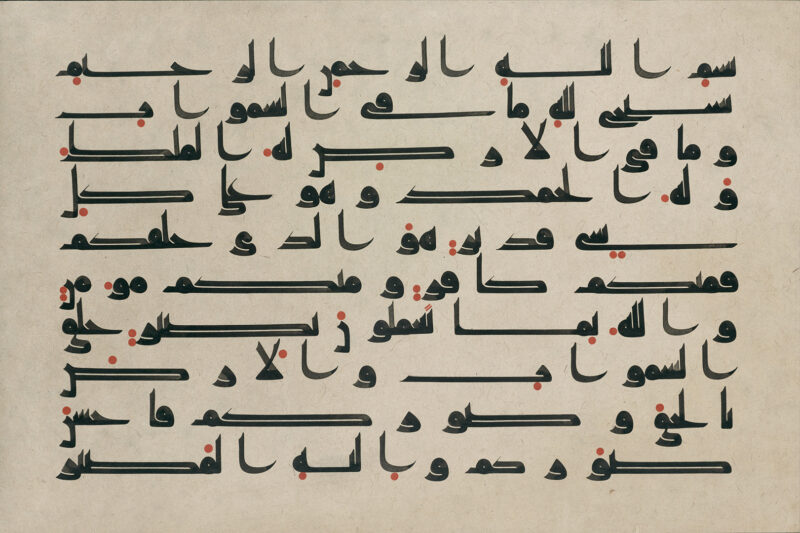 بسم الله الرحمن الرحيم
يسبح لله ما في السموات
وما في الارض له الملك
وله الحمد وهو على كل
شي قدير هو الذي خلقكم
فمنكم كافر ومنكم مومن
والله بما تعملون بصير خلق
السموات والارض
بالحق وصوركم فاحسن
صوركم واليه المصير